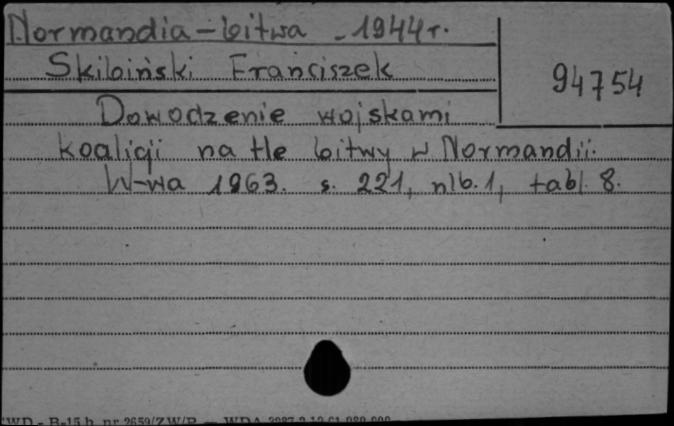 Normandia - bitwa - 1944 r.
Skibiński Franciszek
94754
Dowodzenie wojskami
koalicji na tle bitwy w Normandii.
W-wa 1963. s. 221, nlb. 1, tabl. 8.